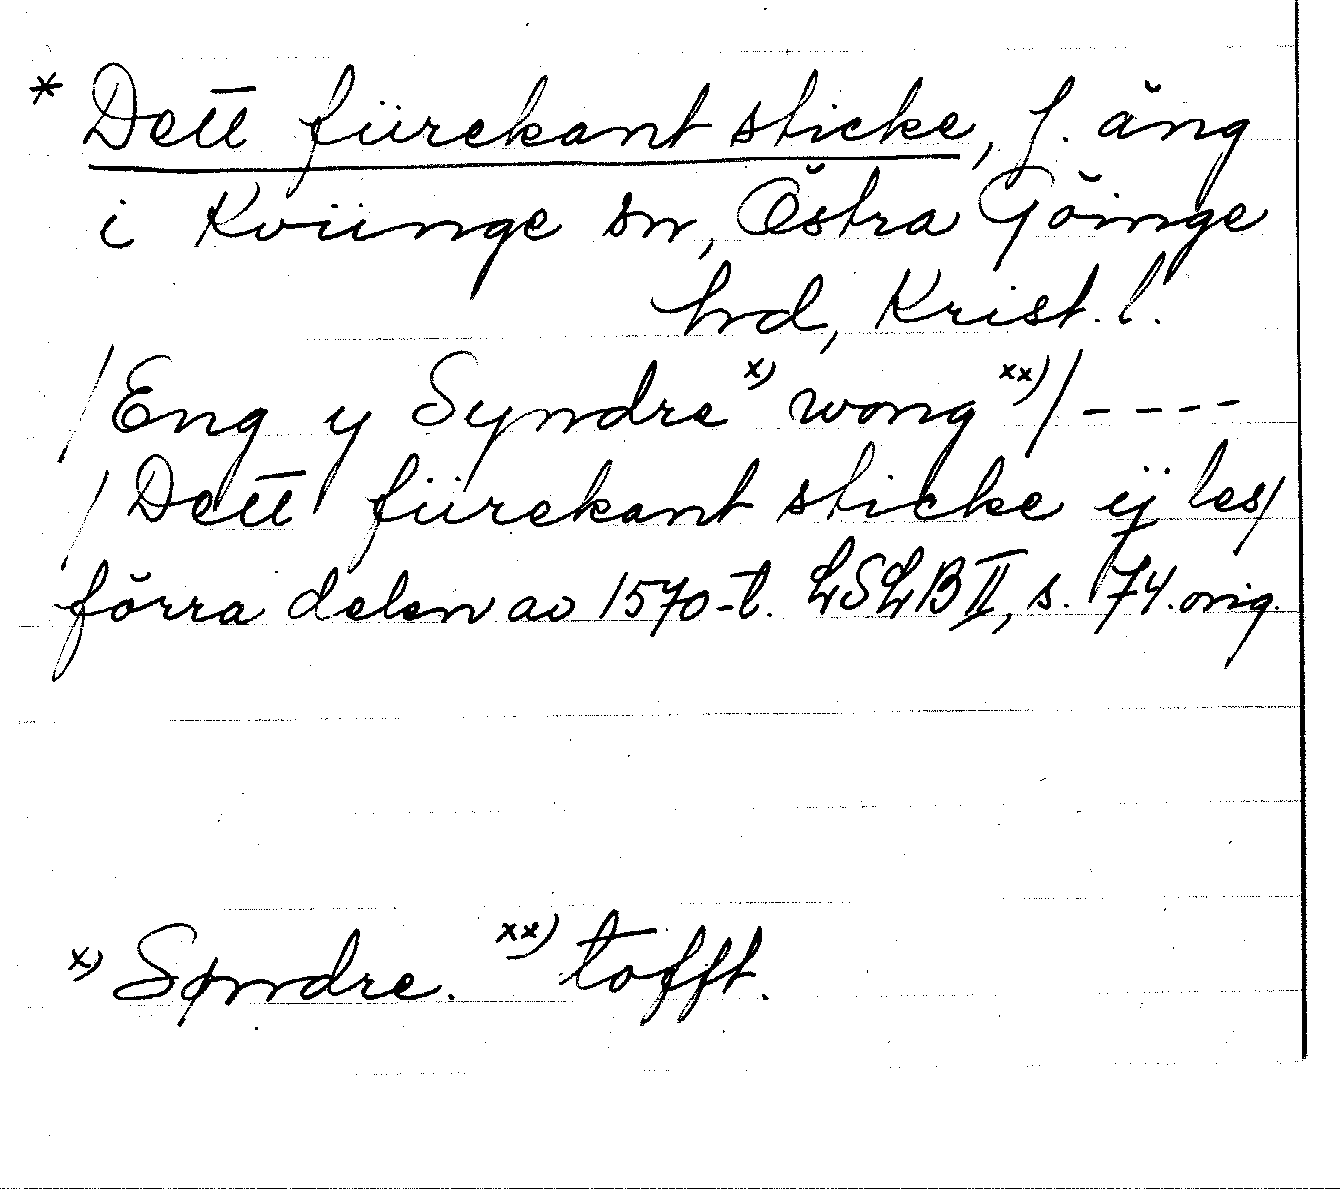 * Dett fürekant sticke, f. äng
i Kviinge sn, Östra Göinge
hrd, Krist. l.
/Eng y Syndre x) wong xx)/ - - - -
/Dett fürekant sticke ij les/
förra delen av 1570-t. LSLB II, s. 74. orig.
x) Søndre. xx) tofft.